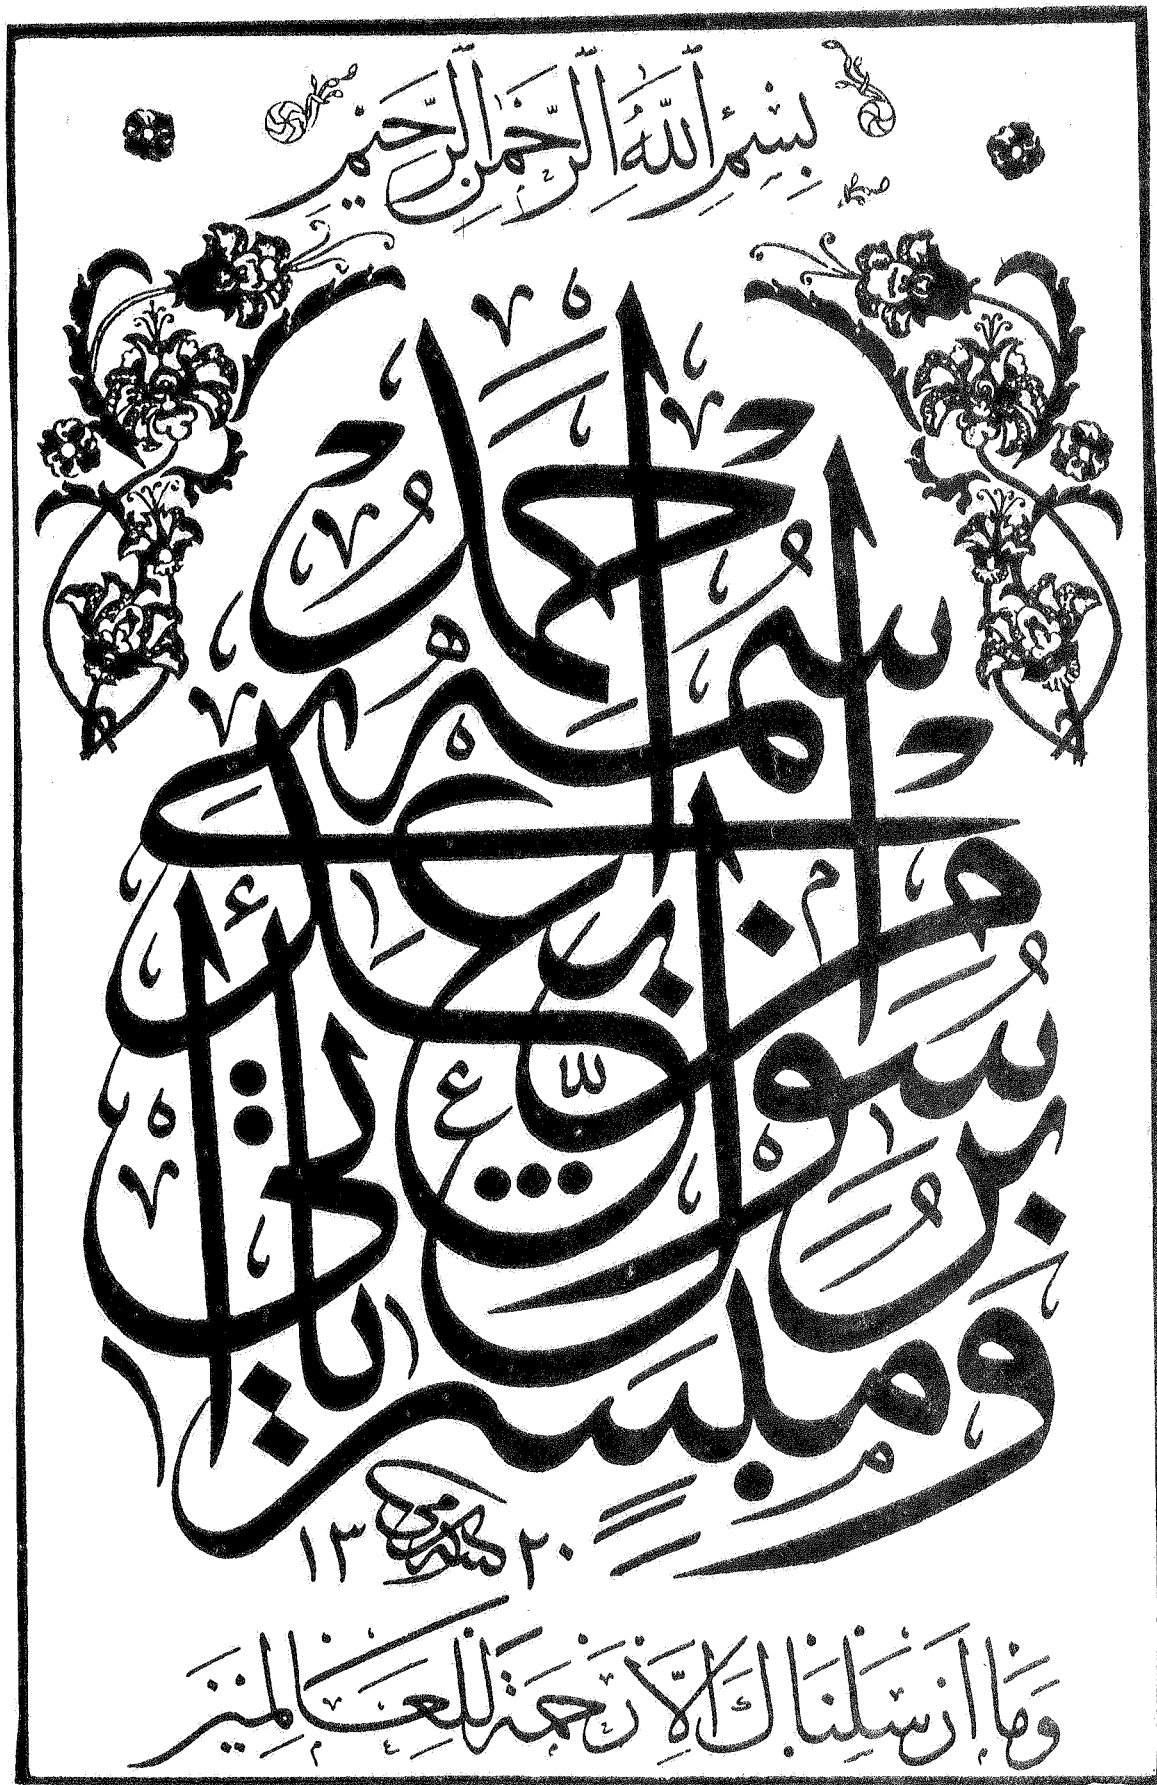 بِسْمِ اللَّهِ الرَّحْمٰنِ الرَّحِيمِ
وَمُبَشِّرًا بِرَسُولٍ يَأْتِي مِنْ بَعْدِي اسْمُهُ أَحْمَدُ
١٣٢٠
وَمَا أَرْسَلْنَاكَ إِلَّا رَحْمَةً لِلْعَالَمِينَ